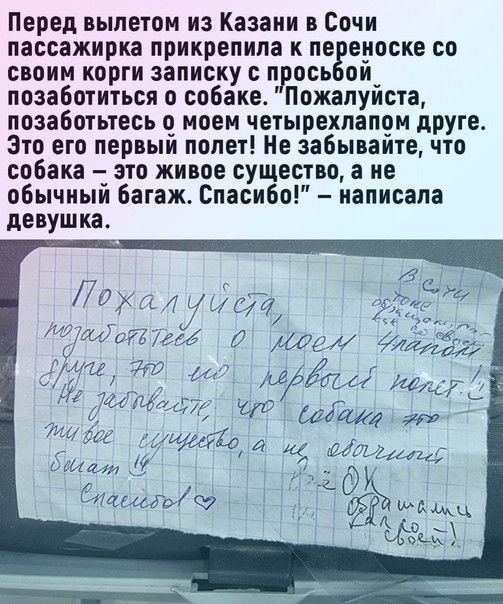 Перед вылетом из Казани в Сочи
пассажирка прикрепила к переноске со
своим корги записку с просьбой
позаботиться о собаке. "Пожалуйста,
позаботьтесь о моем четырехлапом друге.
Это его первый полет! Не забывайте, что
собака – это живое существо, а не
обычный багаж. Спасибо!" – написала
девушка.
Пожалуйста,
позаботьтесь о моем 4лапом
друге, это его первый полет!
Не забывайте, что собака это
живое существо, а не обычный
багаж !!
Спасибо! ♡
В Сочи
тоже
как со своей
Всё ОК
обращались
как со
своей!